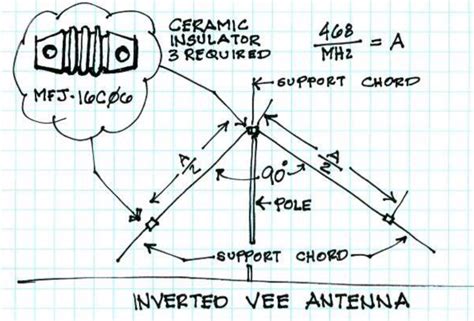 CERAMIC
INSULATOR
3 REQUIRED
468
MHz
= A
MFJ-16CØ6
SUPPORT CHORD
A/2
A/2
90°
POLE
SUPPORT CHORD
INVERTED VEE ANTENNA